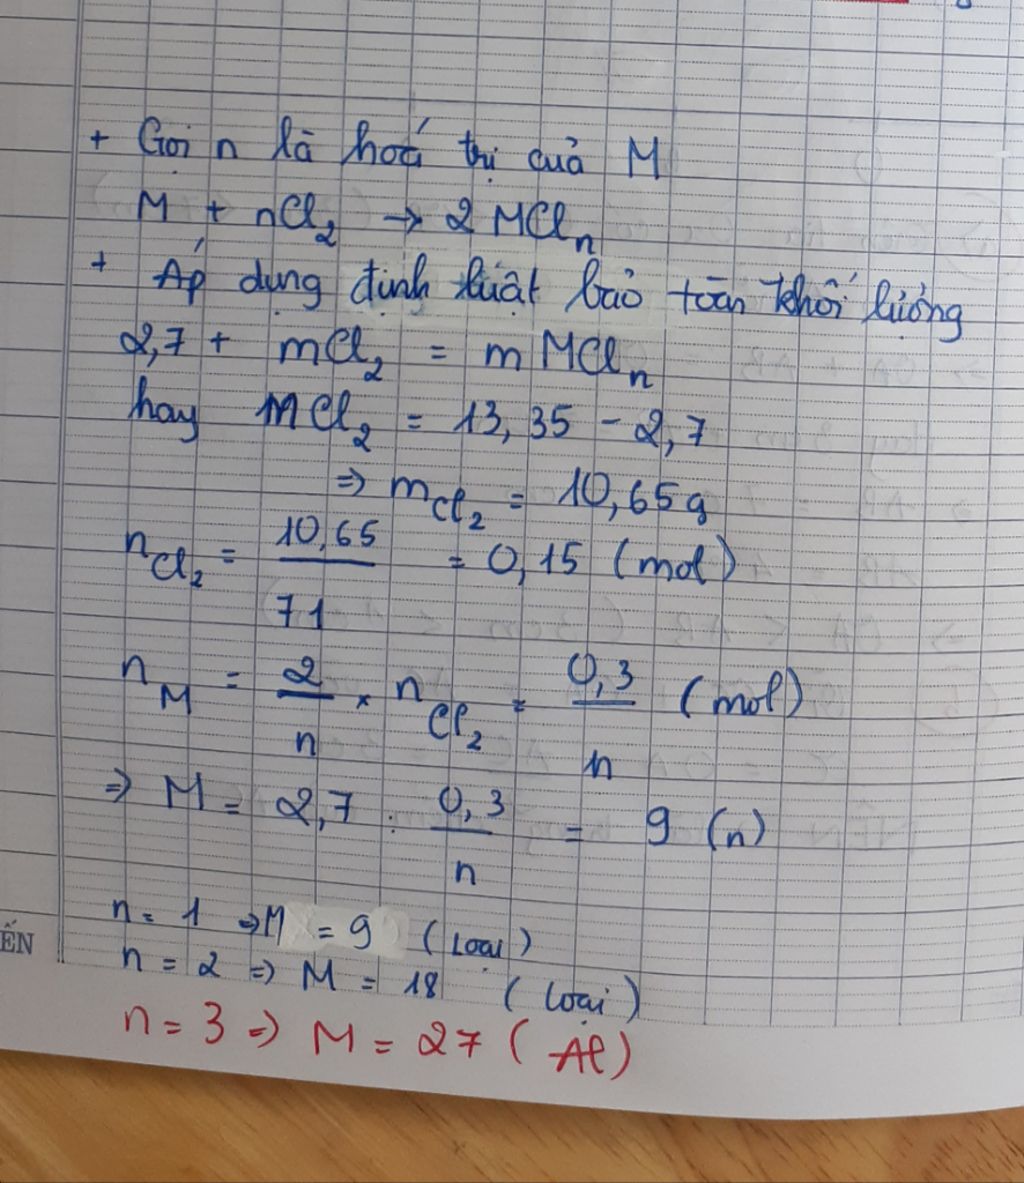 + Gọi n là hoá trị của M
M + nCl₂ → 2 MClₙ
+ Áp dụng định luật bảo toàn khối lượng
2,7 + mCl₂ = m MClₙ
hay mCl₂ = 13,35 - 2,7
⇒ mCl₂ = 10,65g
nCl₂ = 10,65/71 = 0,15 (mol)
nM = 2/n × nCl₂ = 0,3/n (mol)
⇒ M = 2,7 : 0,3/n = 9 (n)
n = 1 ⇒ M = 9 (Loại)
n = 2 ⇒ M = 18 (loại)
ẾN
n = 3 ⇒ M = 27 (Al)